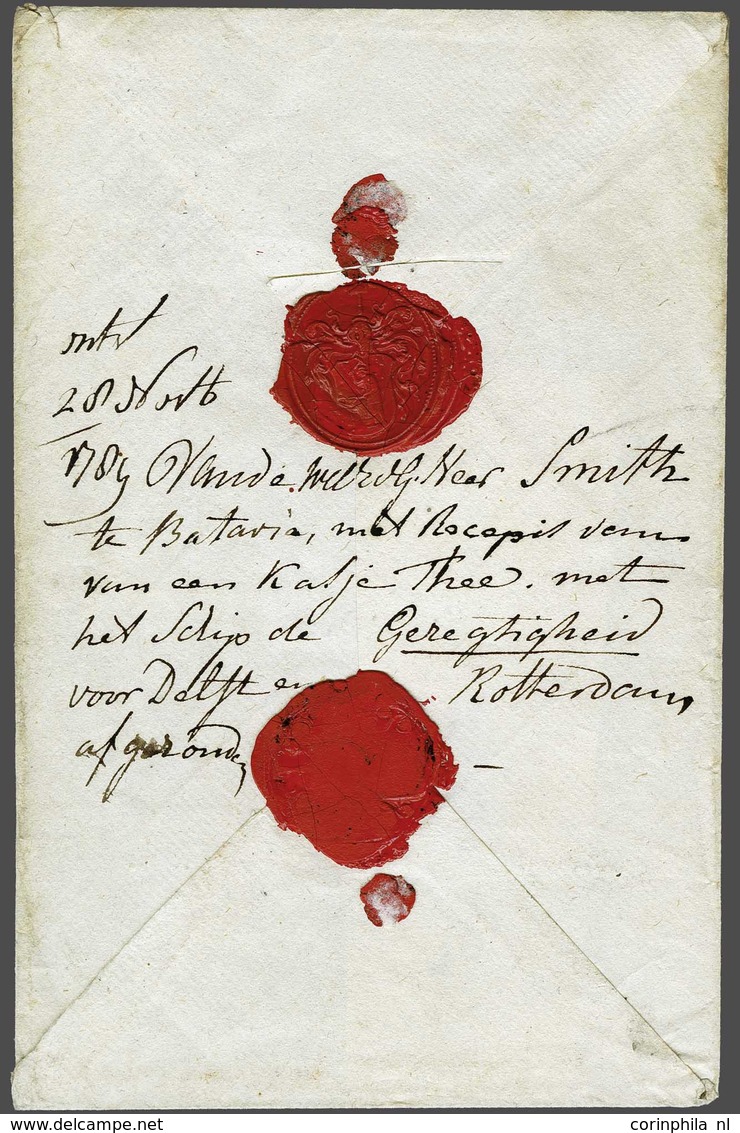 28 Novb
1789 Vande WelEdG. Heer Smith
te Batavia, met Recepis van
van een Katje Thee. met
het Schip de Geregtigheid
voor Delft en Rotterdam
afgezonde
delcampe.net
corinphila nl